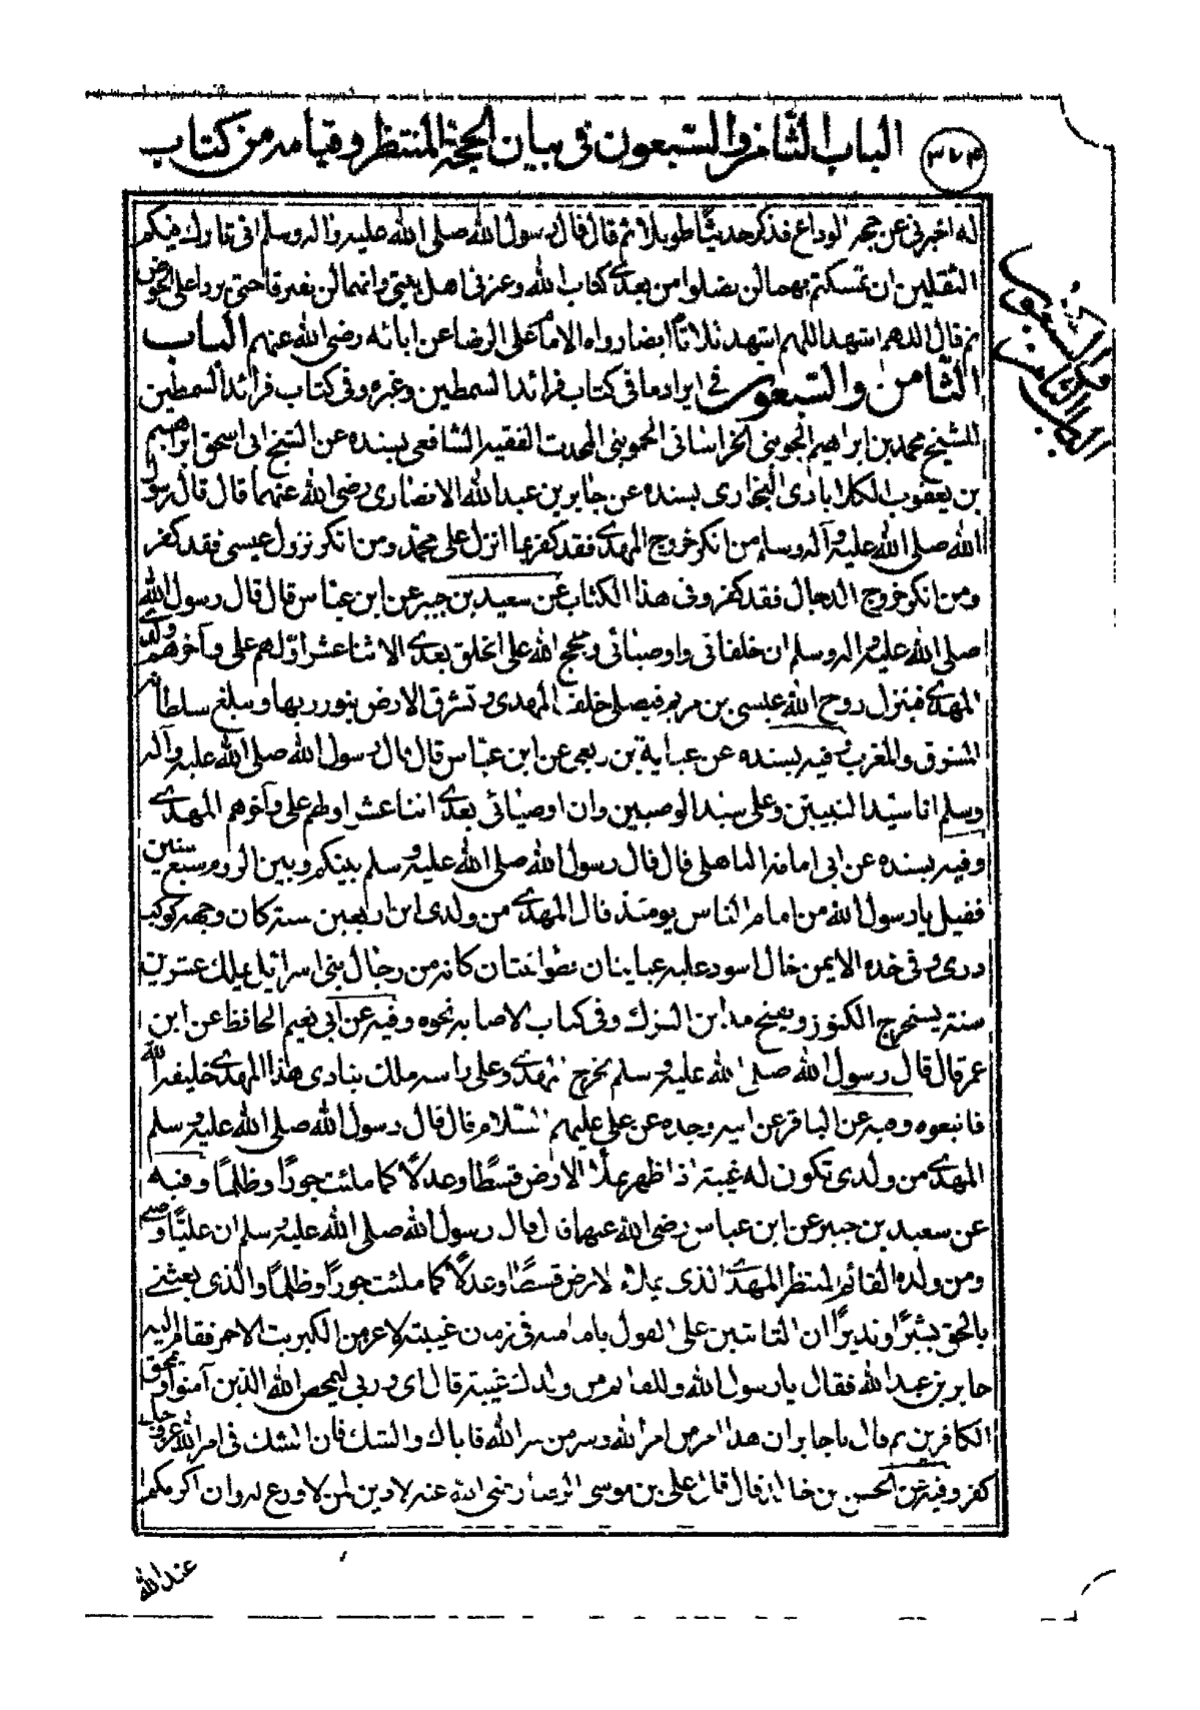 الباب الثامن والسبعون في بيان الحجة المنتظر وقيامه من كتاب
له اخبرني عن حجة الوداع فذكر حديثا طويلا ثم قال قال رسول الله صلى الله عليه واله وسلم اني تارك فيكم
الثقلين ان تمسكتم بهما لن تضلوا من بعدي كتاب الله وعترتي اهل بيتي وانهما لن يفترقا حتى يردا على الحوض
ثم قال اللهم اشهد اللهم اشهد ثلاثا ايضا رواه الامام علي الرضا عن ابائه رضي الله عنهم الباب
الثامن والسبعون في ايراد ما في كتاب فرائد السمطين وغيره وفي كتاب فرائد السمطين
للشيخ محمد بن ابراهيم الجويني الخراساني الحمويني المحدث الفقيه الشافعي بسنده عن الشيخ ابي اسحق ابراهيم
بن يعقوب الكلابادي البخاري بسنده عن جابر بن عبد الله الانصاري رضي الله عنهما قال قال رسول
الله صلى الله عليه وآله وسلم من انكر خروج المهدي فقد كفر بما انزل على محمد ومن انكر نزول عيسى فقد كفر
ومن انكر خروج الدجال فقد كفر وفي هذا الكتاب عن سعيد بن جبير عن ابن عباس قال قال رسول الله
صلى الله عليه واله وسلم ان خلفائي واوصيائي وحجج الله على الخلق بعدي الاثنا عشر اولهم علي وآخرهم ولدي
المهدي فينزل روح الله عيسى بن مريم فيصلي خلف المهدي وتشرق الارض بنور ربها ويبلغ سلطانه
المشرق والمغرب وفيه بسنده عن عباية بن ربعي عن ابن عباس قال قال رسول الله صلى الله عليه وآله
وسلم انا سيد النبيين وعلي سيد الوصيين وان اوصيائي بعدي اثنا عشر اولهم علي وآخرهم المهدي
وفيه بسنده عن ابي امامة الباهلي قال قال رسول الله صلى الله عليه وسلم بينكم وبين الروم سبع سنين
فقيل يا رسول الله من امام الناس يومئذ قال المهدي من ولدي ابن اربعين سنة كان وجهه كوكب
دري وفي خده الايمن خال اسود عليه عبايتان قطوانيتان كانه من رجال بني اسرائيل يملك عشرين
سنة يستخرج الكنوز ويفتح مداين الشرك وفي كتاب الاصابة نحوه وفيه عن ابي نعيم الحافظ عن ابن
عمر قال قال رسول الله صلى الله عليه وسلم يخرج المهدي وعلى راسه ملك ينادي هذا المهدي خليفة الله
فاتبعوه وفيه عن الباقر عن ابيه وجده عن علي عليهم السلام قال قال رسول الله صلى الله عليه وسلم
المهدي من ولدي تكون له غيبة اذا ظهر يملأ الارض قسطا وعدلا كما ملئت جورا وظلما وفيه
عن سعيد بن جبير عن ابن عباس رضي الله عنهما قال قال رسول الله صلى الله عليه وسلم ان عليا وصيي
ومن ولده القائم المنتظر المهدي الذي يملاء الارض قسطا وعدلا كما ملئت جورا وظلما والذي بعثني
بالحق بشيرا ونذيرا ان الثابتين على القول بامامته في زمان غيبته لاعز من الكبريت الاحمر فقام اليه
جابر بن عبد الله فقال يا رسول الله وللقائم من ولدك غيبة قال اي وربي ليمحص الله الذين آمنوا ويمحق
الكافرين ثم قال يا جابر ان هذا امر من امر الله وسر من سر الله فاياك والشك فان الشك في امر الله عز وجل
كفر وفيه عن الحسن بن خالد قال قال علي بن موسى الرضا رضي الله عنه لا دين لمن لا ورع له وان اكرمكم
عند الله